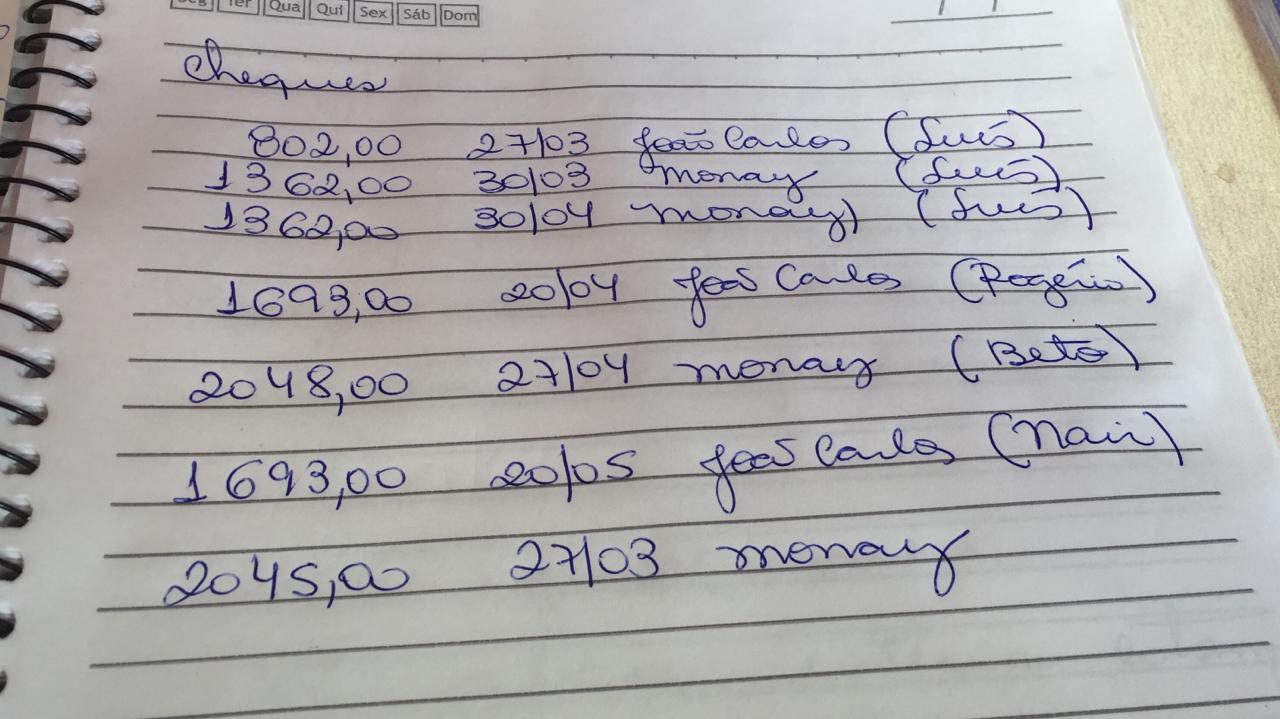 Seg Ter Qua Qui Sex Sáb Dom
Cheques
802,00 27/03 João Carlos (Luís)
1362,00 30/03 monay (Luís)
1362,00 30/04 monay) (Luís)
1693,00 20/04 João Carlos (Rogério)
2048,00 27/04 monay (Beto)
1693,00 20/05 João Carlos (Nair)
2045,00 27/03 monay